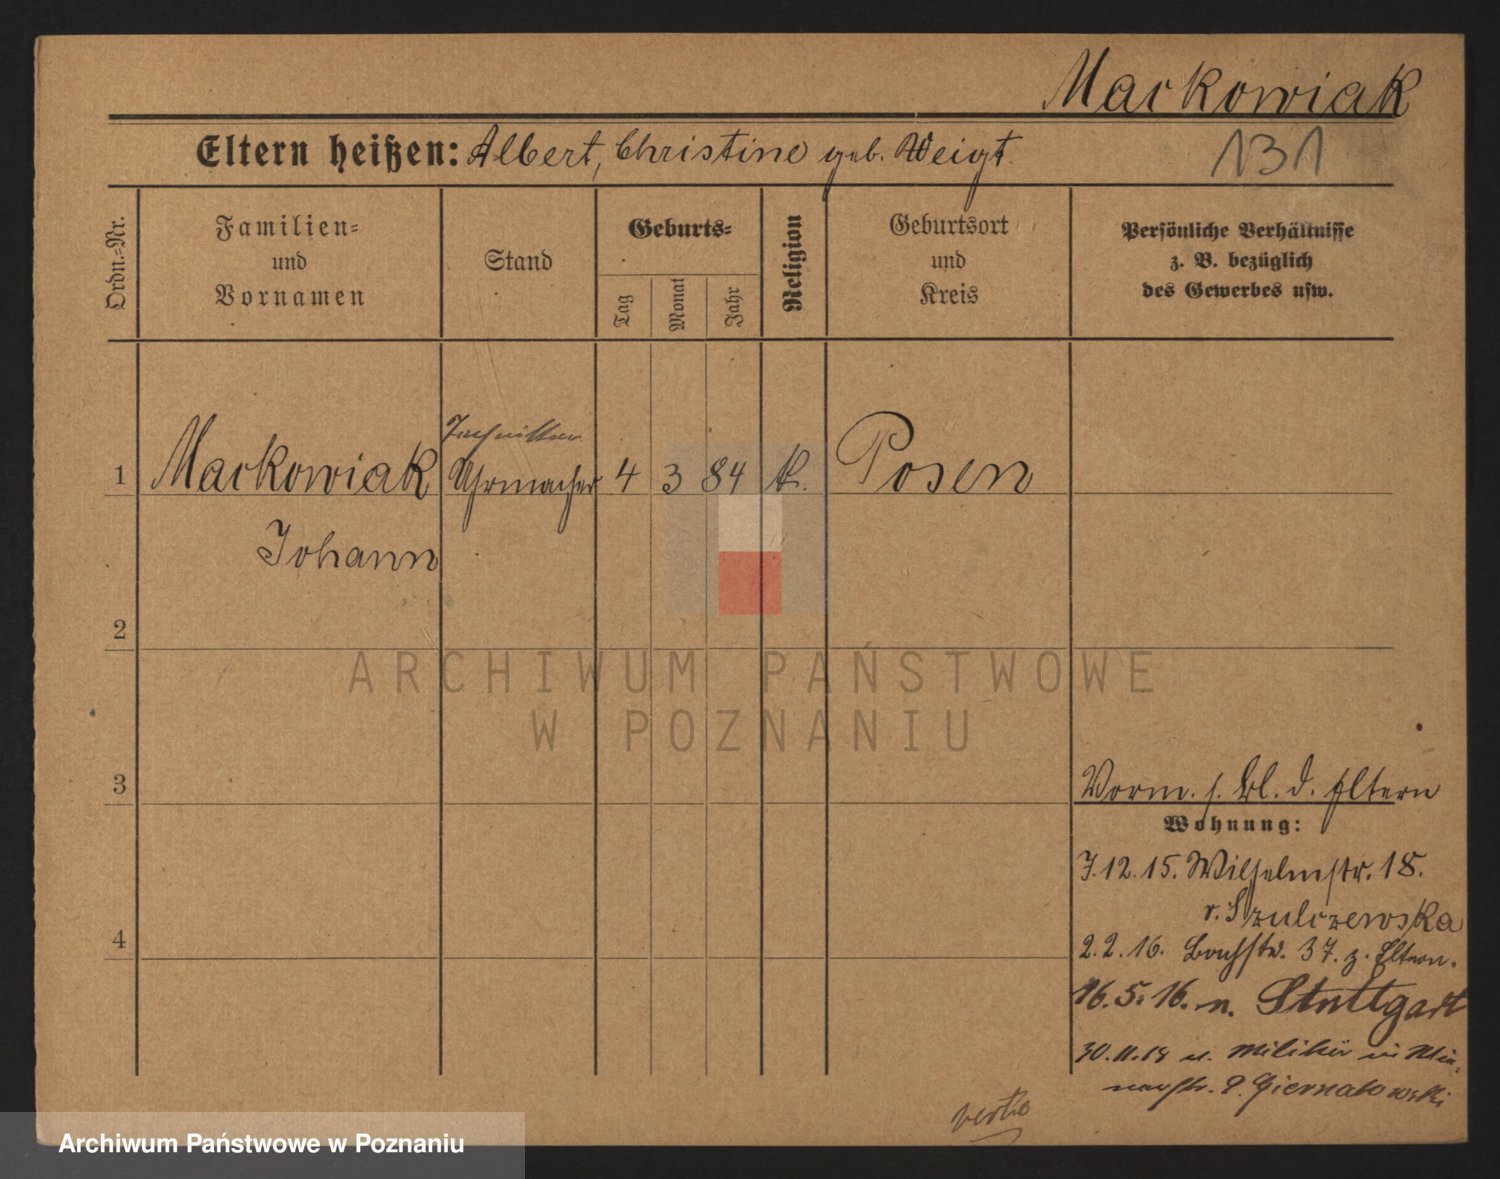 Markowiak
Eltern heißen: Albert, Christine geb. Weigt
131
Ordn.=Nr.
Familien=
und
Vornamen
Stand
Geburts=
Tag
Monat
Jahr
Religion
Geburtsort
und
Kreis
Persönliche Verhältnisse
z. B. bezüglich
des Gewerbes usw.
Techniker
1 Markowiak Uhrmacher 4 3 84 k. Posen
Johann
2
ARCHIWUM PAŃSTWOWE
W POZNANIU
3
Vorm. s. Bl. d. Eltern
Wohnung:
7.12.15. Wilhelmstr. 18.
Szulczewska
4
2.2.16. Bachstr. 37. z. Eltern.
16.5.16. n. Stuttgart
30.11.18 v. Militär in
verte
Archiwum Państwowe w Poznaniu